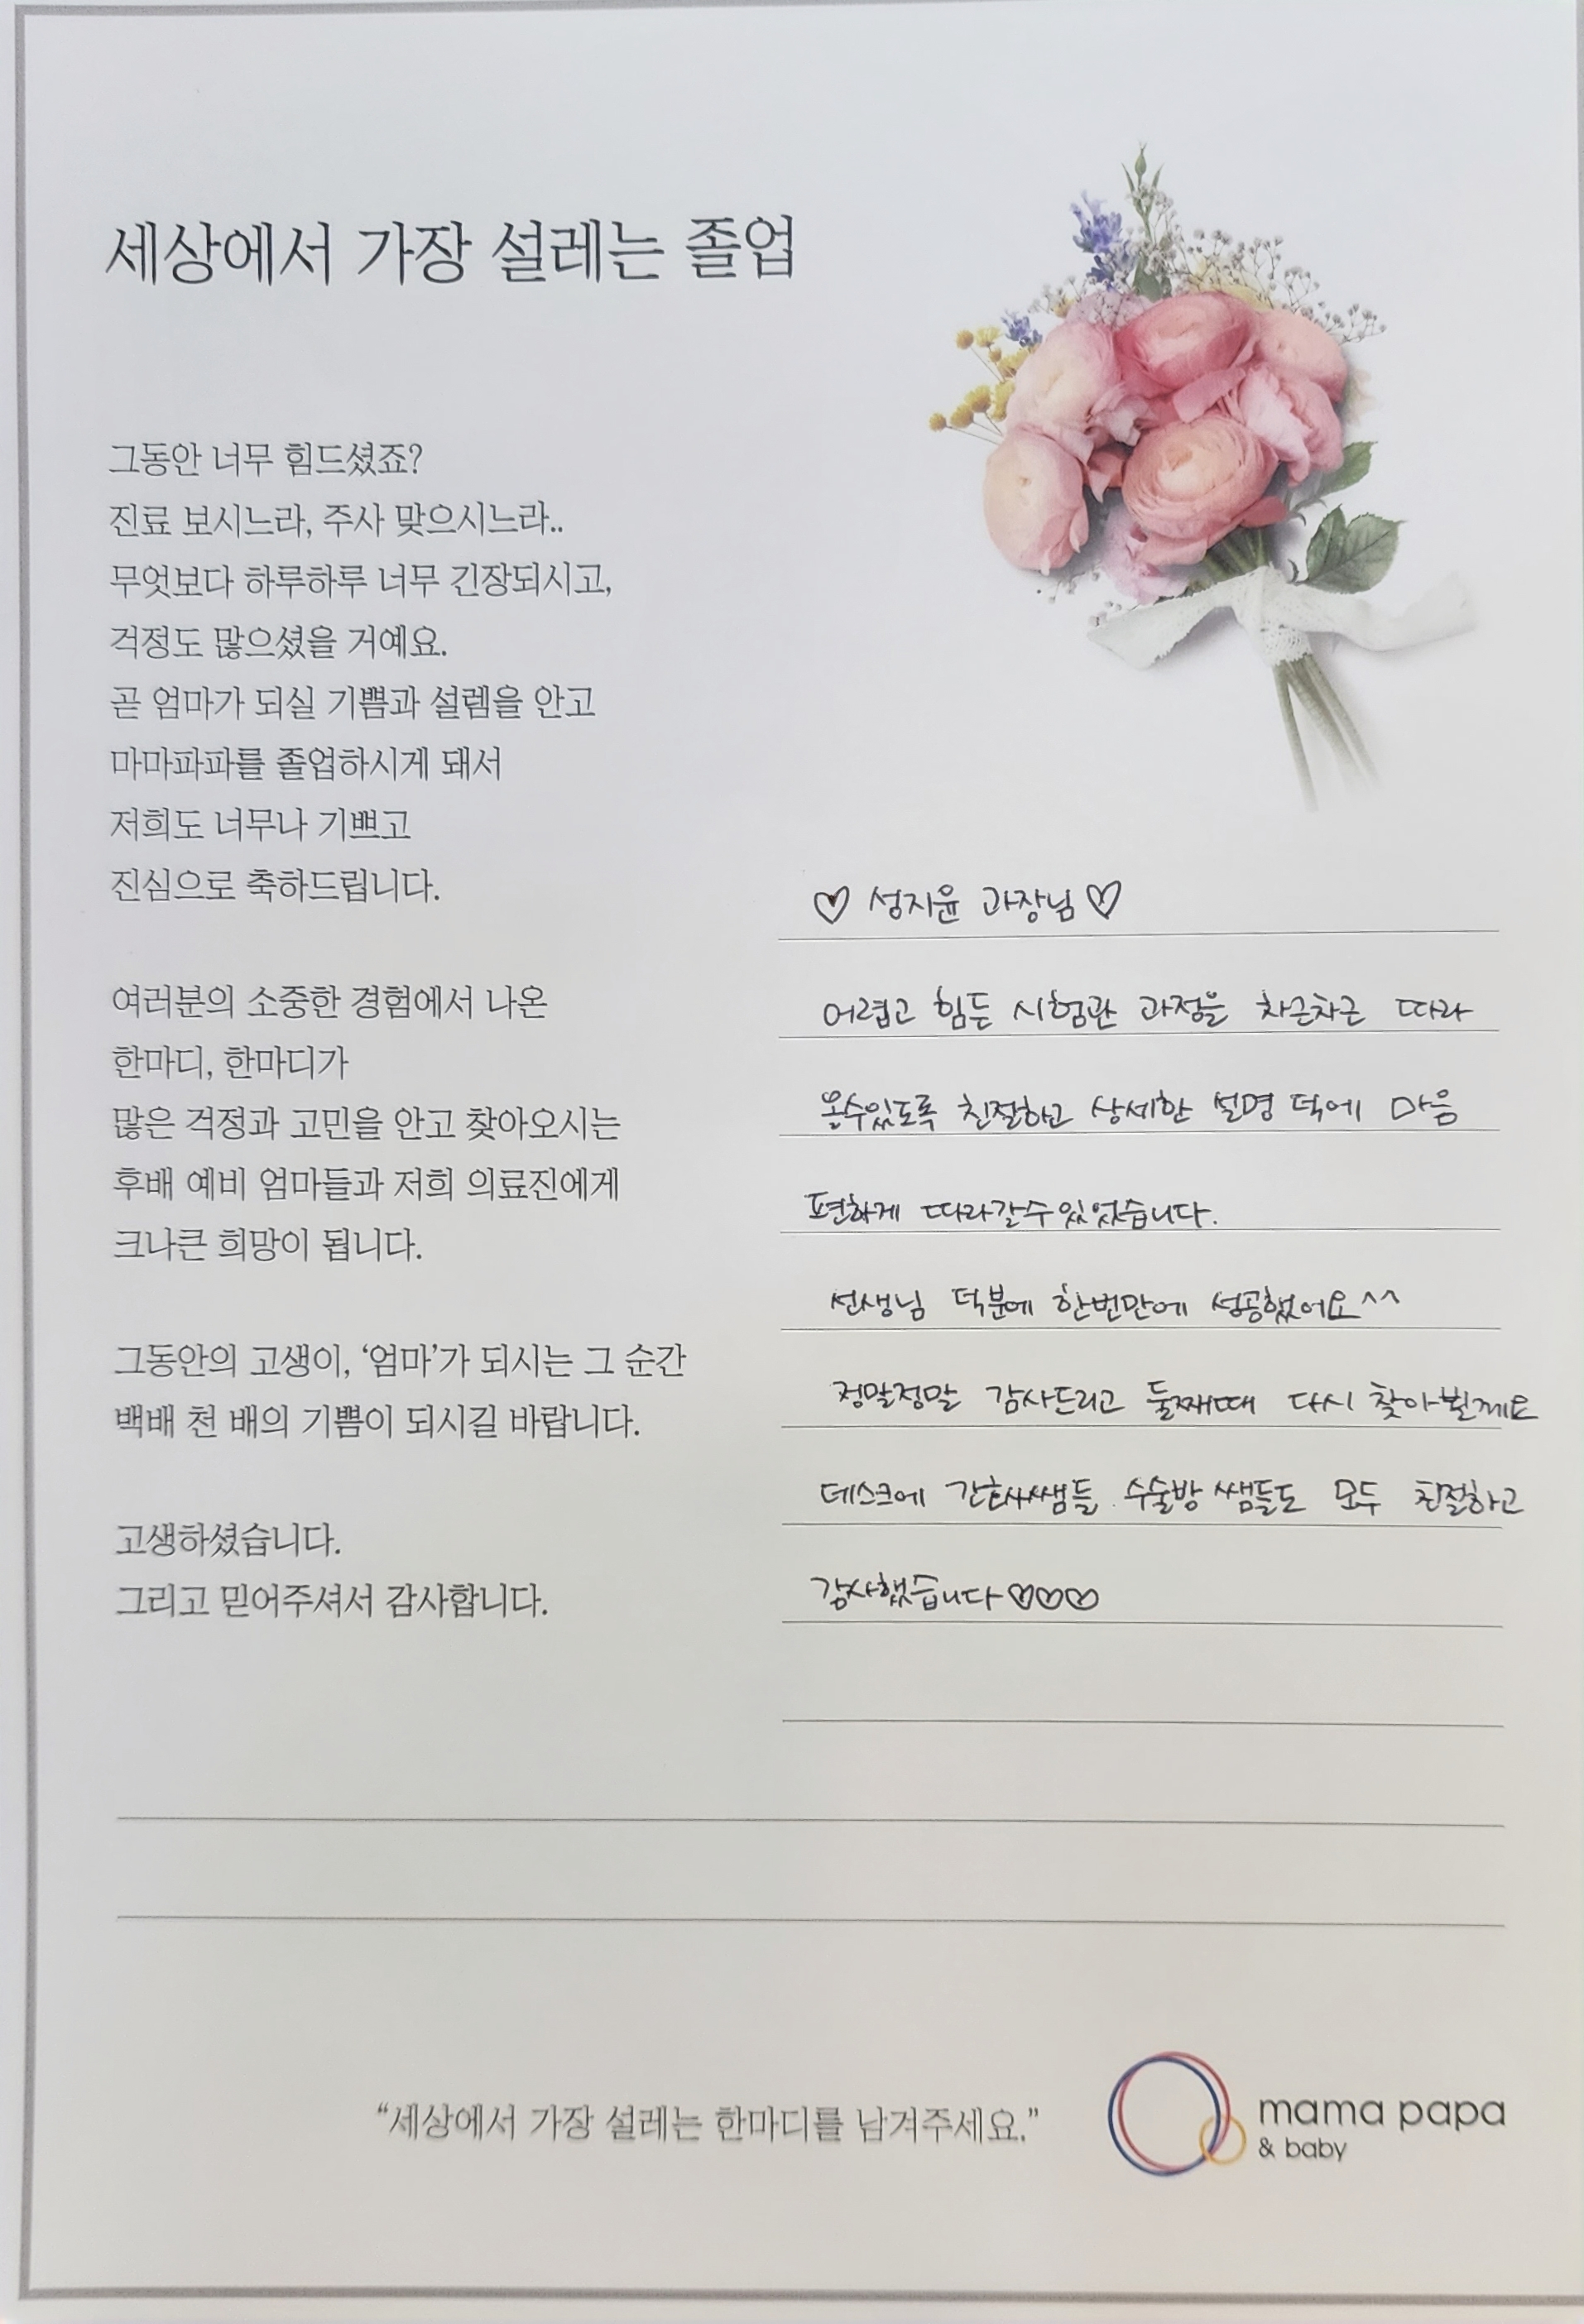 세상에서 가장 설레는 졸업
그동안 너무 힘드셨죠?
진료 보시느라, 주사 맞으시느라..
무엇보다 하루하루 너무 긴장되시고,
걱정도 많으셨을 거예요.
곧 엄마가 되실 기쁨과 설렘을 안고
마마파파를 졸업하시게 돼서
저희도 너무나 기쁘고
진심으로 축하드립니다.
여러분의 소중한 경험에서 나온
한마디, 한마디가
많은 걱정과 고민을 안고 찾아오시는
후배 예비 엄마들과 저희 의료진에게
크나큰 희망이 됩니다.
그동안의 고생이, ‘엄마’가 되시는 그 순간
백배 천 배의 기쁨이 되시길 바랍니다.
고생하셨습니다.
그리고 믿어주셔서 감사합니다.
♡ 성지윤 과장님♡
어렵고 힘든 시험관 과정을 차근차근 따라
올수있도록 친절하고 상세한 설명 덕에 마음
편하게 따라갈수있었습니다.
선생님 덕분에 한번만에 성공했어요^^
정말정말 감사드리고 둘째때 다시 찾아뵐께요
데스크에 간호사쌤들. 수술방 쌤들도 모두 친절하고
감사했습니다♡♡♡
“세상에서 가장 설레는 한마디를 남겨주세요.”
mama papa
& baby